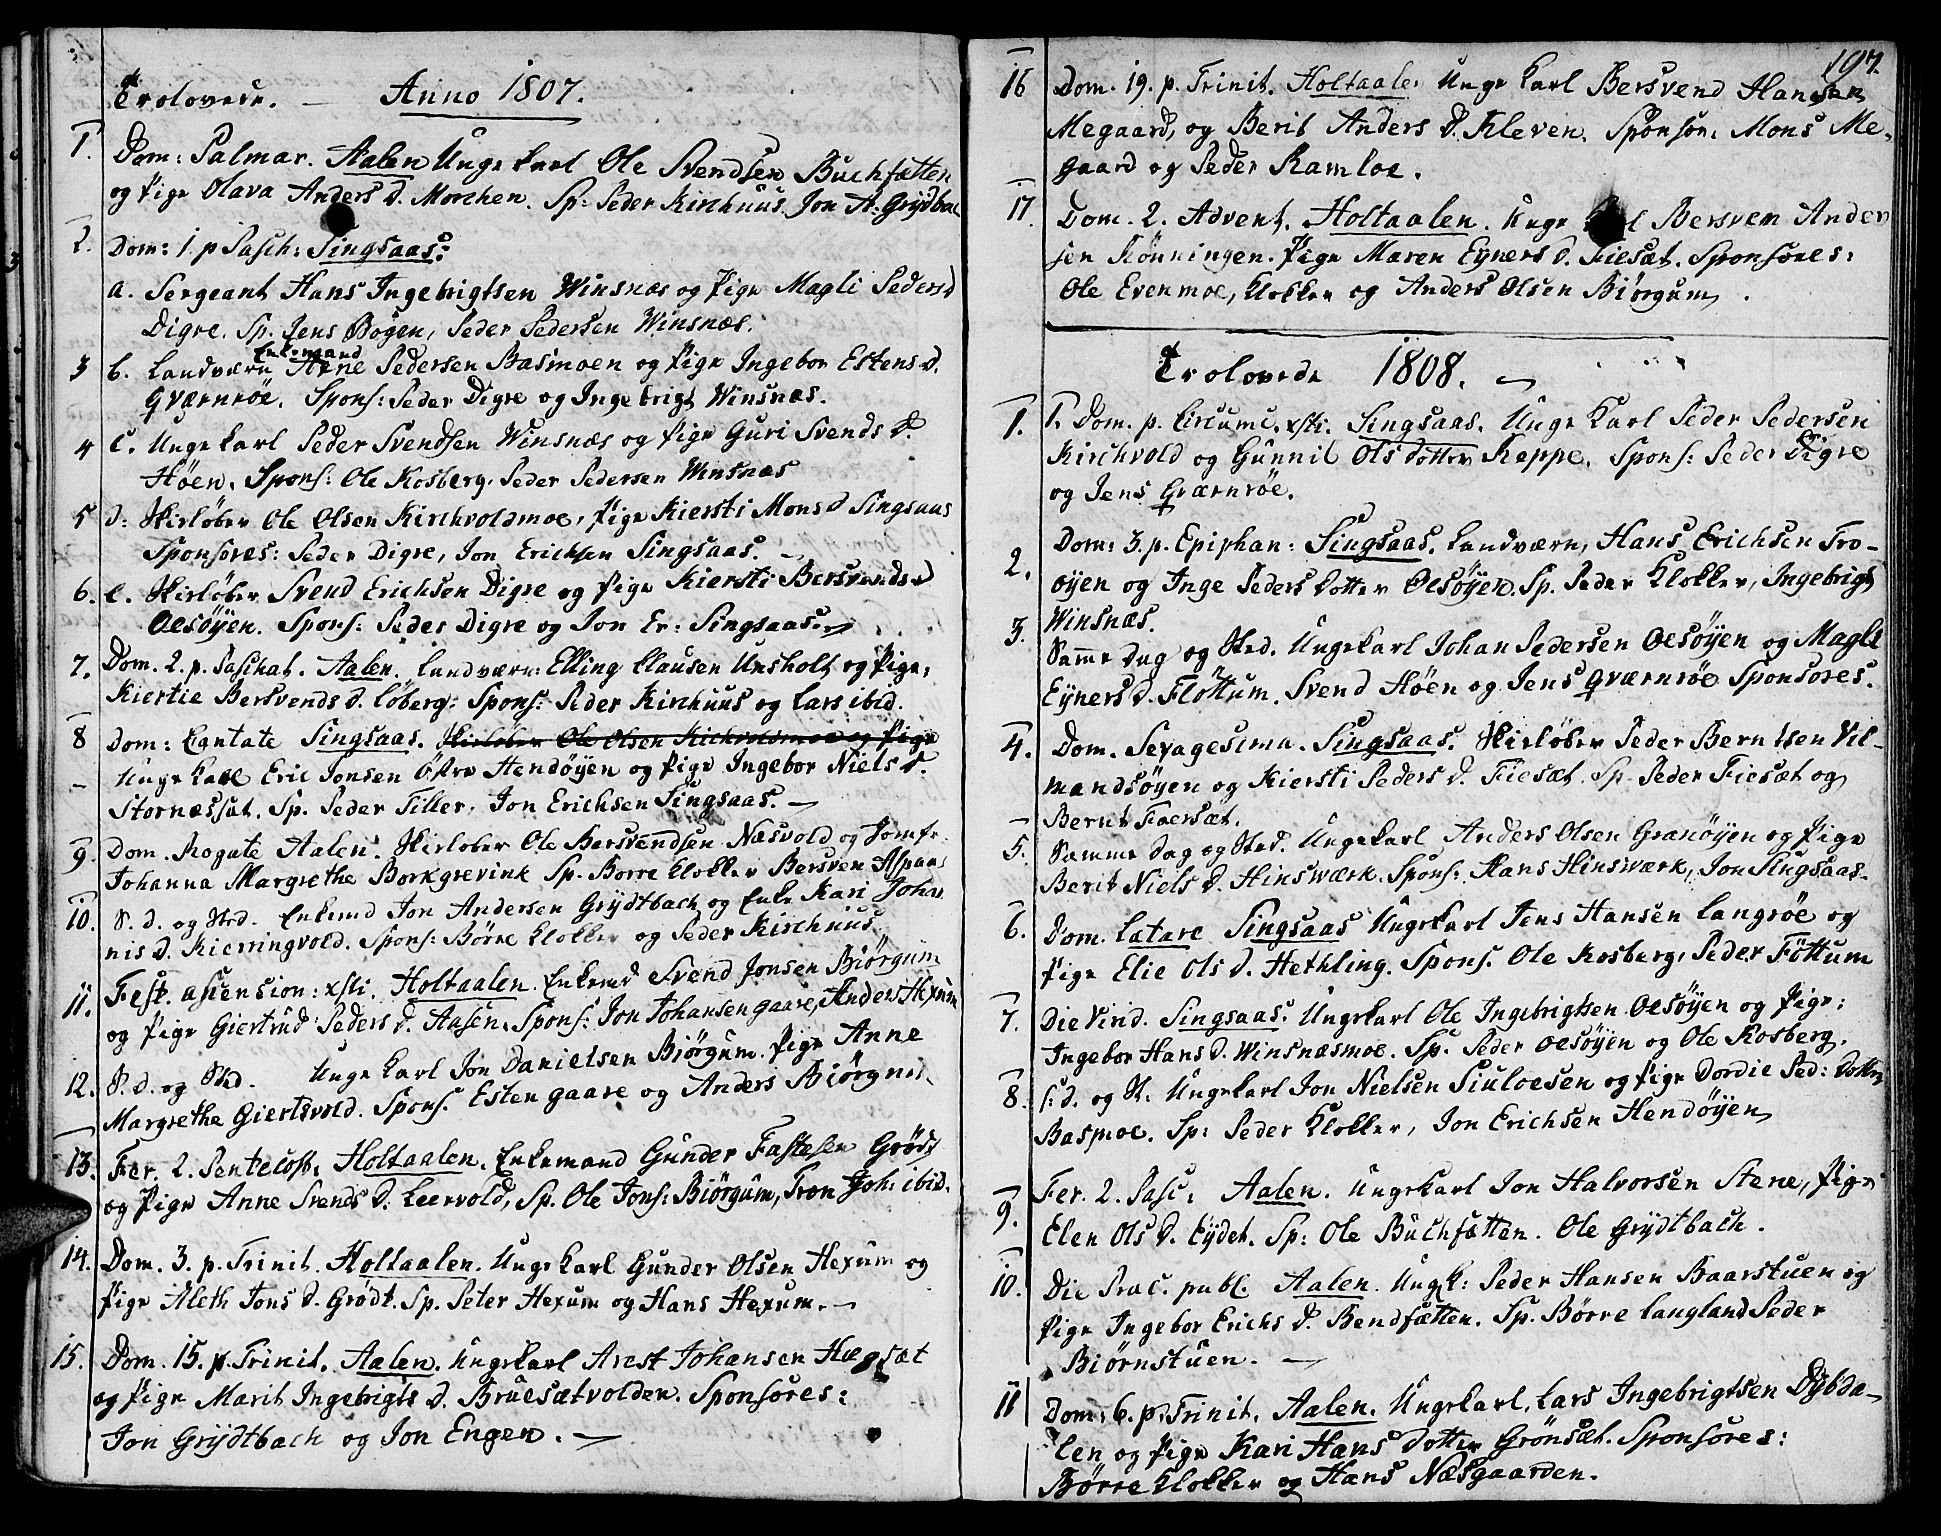 Trolovede. — Anno 1807.
1. Dom: Palmar. Aalen Unge Karl Ole Svendsen Buchsetten
og Pige Olava Anders D. Morchen. Sp: Peder Kirchuus. Jon A. Grydbac
2. Dom: 1. p Pasch: Singsaas:
a. Sergeant Hans Ingebrigtsen Winsnæs og Pige Magli Peders D
Digre. Sp. Jens Bogen, Peder Pedersen Winsnæs.
Enkemand
3 b. Landværn Arne Pedersen Basmoen og Pige Ingebor Estens D.
Qværnröe. Spons: Peder Digre og Ingebrigt Winsnæs.
4 c. Unge Karl Peder Svendsen Winsnæs og Pige Guri Svends D.
Höen. Spons: Ole Kosberg. Peder Pedersen Winsnæs
5 d: Skirlöber Ole Olsen Kirchvoldmoe, Pige Kiersti Mons D Singsaas
Sponsores: Peder Digre, Jon Erichsen Singsaas. —
6. e. Skirlöber Svend Erichsen Digre og Pige Kiersti Bersvends D
Oesöyen. Spons: Peder Digre og Jon Er: Singsaas.
7. Dom. 2. p. Paschat. Aalen. Landværn: Elling Clausen Unsholt og Pige:
Kiertie Bersvends D. Löberg: Spons: Peder Kirchuus og Lars ibid.
8 Dom: Cantate Singsaas. Skirlöber Ole Olsen Kirchvoldmoe og Pige
Unge Karl Eric Jonsen Östre Hendöyen og Pige Ingebor Niels D.
Stornæssæt. Sp. Peder Tiller. Jon Erichsen Singsaas. —
9. Dom. Rogate Aalen. Skirlöber Ole Bersvendsen Næsvold og Jomfr.
Johanna Margrethe Borkgrevink Sp. Borre Klokker Bersven Aspaas
10. S. D. og Sted. Enkemd Jon Andersen Grydtbach og Enke Kari Johan
nis D. Kierringvold. Spons: Börre Klokker og Peder Kirchuus.
11. Fest. ascension: xsti. Holtaalen. Enkemd Svend Jonsen Biörgum
og Pige Giertrud Peders D. Aasen. Spons: Jon Johansen Gaare, Anders Hexum
12. S. D. og Sted. Unge Karl Jon Danielsen Biörgum. Pige Anne
Margrethe Giertsvold. Spons. Esten Gaare og Anders Biörgum.
13. Fer. 2. Pentecost. Holtaalen. Enkemand Gunder Fastesen Grödt
og Pige Anne Svends D. Leervold, Sp. Ole Jons: Biörgum, Tron Joh: ibid.
14. Dom. 3. p. Trinit. Holtaalen. Unge Karl Gunder Olsen Hexum og
Pige Aleth Jons D. Grödt. Sp. Peter Hexum og Hans Hexum. —
15. Dom. 15. p. Trinit. Aalen. Ungekarl Arest Johansen Hægsæt
og Pige Marit Ingebrigts D. Bruesætvolden. Sponsores:
Jon Grydtbach og Jon Engen. —
197.
16 Dom. 19. p. Trinit. Holtaalen Unge Karl Bersvend Hansen
Megaard, og Berit Anders D. Kleven. Sponsor: Mons Me-
gaard og Peder Ramloe.
17. Dom. 2. Advent. Holtaalen. Unge Karl Bersven Ander
sen Rönningen. Pige Maren Eyners D. Fiesæt. Sponsores:
Ole Evenmoe, Klokker og Anders Olsen Biörgum.
Trolovede 1808. —
1. 1. Dom. p. Circumc. xsti. Singsaas. Unge Karl Peder Pedersen
Kirchvold og Gunnil Ols Dotter Reppe. Spons: Peder Digre
og Jens Qværnröe.
2. Dom: 3. p. Epiphan: Singsaas. Landværn, Hans Erichsen Tro-
öyen og Inge Peders Dotter Oesöyen. Sp. Peder Klokker, Ingebrigt
Winsnæs.
3. Samme Dag og Sted. Ungekarl Johan Pedersen Oesöyen og Magli
Eyners D. Flöttum. Svend Höen og Jens Qværnröe Sponsores.
4. Dom. Sexagesima. Singsaas. Skirlöber Peder Berntsen Vil-
mandsöyen og Kiersti Peders D. Fiesæt. Sp. Peder Fiesæt og
Bernt Foersæt.
5. Samme Dag og Sted. Ungekarl Anders Olsen Granöyen og Pige
Berit Niels D. Hinswærk. Spons: Hans Hinswærk, Jon Singsaas.
6. Dom. Lætare Singsaas Ungekarl Jens Hansen Langröe og
Pige Elie Ols D. Hethling. Spons. Ole Kosberg, Peder Föttum
7. Die Vind. Singsaas. Ungekarl Ole Ingebrigtsen Oesöyen og Pige:
Ingebor Hans D. Winsnæsmoe. Sp. Peder Oesöyen og Ole Kosberg.
8. S: D. og St. Ungekarl Jon Nielsen Siuloesen og Pige Dordie Ped: Dotter
Basmoe. Sp: Peder Klokker, Jon Erichsen Hendöyen
9. Fer. 2. Pasc. Aalen. Ungekarl Jon Halvorsen Stene, Pige
Elen Ols D. Eydet. Sp: Ole Buchsætten. Ole Grydtbach.
10. Die Prac. publ. Aalen. Ungk: Peder Hansen Baarstuen og
Pige Ingebor Erichs D. Bendsætten. Sp. Börre Langland Peder
Biörnstuen. —
11 Dom: 6. p. Trinit. Aalen. Ungekarl, Lars Ingebrigtsen Dybda-
len og Pige Kari Hans Dotter Grönsæt. Sponsores:
Börre Klokker og Hans Næsgaarden.